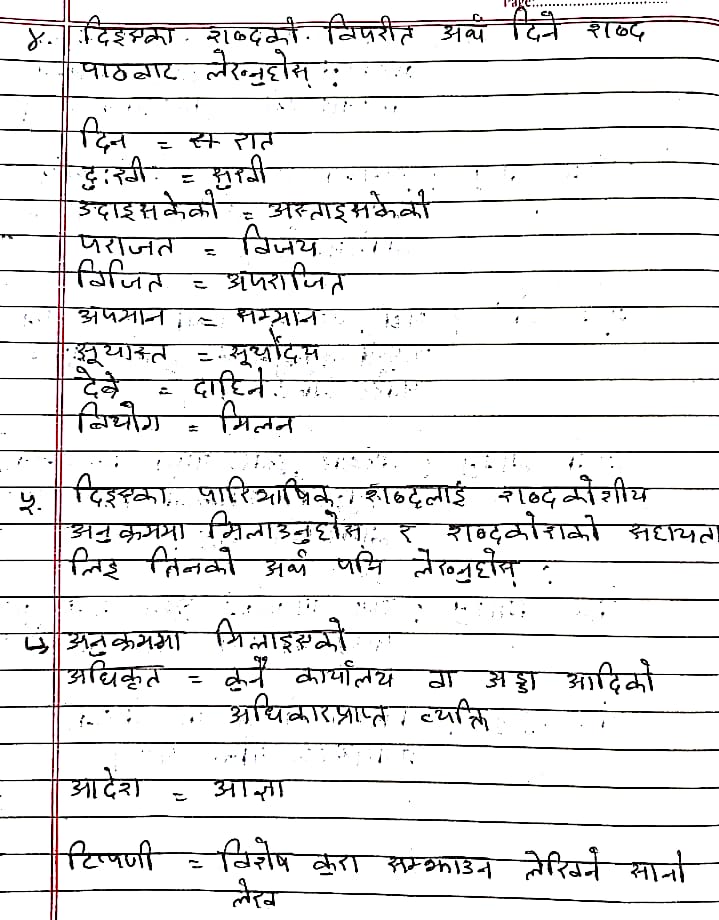 Page:
४. दिइएका शब्दको विपरीत अर्थ दिने शब्द
पाठबाट लेख्नुहोस् :
दिन = रात
दुःखी = सुखी
उदाइसकेको = अस्ताइसकेको
पराजत = विजय
विजित = अपराजित
अपमान = सम्मान
सूयास्त = सूर्योदय
देब्रे = दाहिने
वियोग = मिलन
५. दिइएका पारिभाषिक शब्दलाई शब्दकोशीय
अनुक्रममा मिलाउनुहोस् र शब्दकोशको सहायता
लिइ तिनको अर्थ पनि लेख्नुहोस् :
↳ अनुक्रममा मिलाइएको
अधिकृत = कुनै कार्यालय वा अड्डा आदिको
अधिकारप्राप्त व्यक्ति
आदेश = आज्ञा
टिप्पणी = विशेष कुरा सम्झाउन लेखिने सानो
लेख